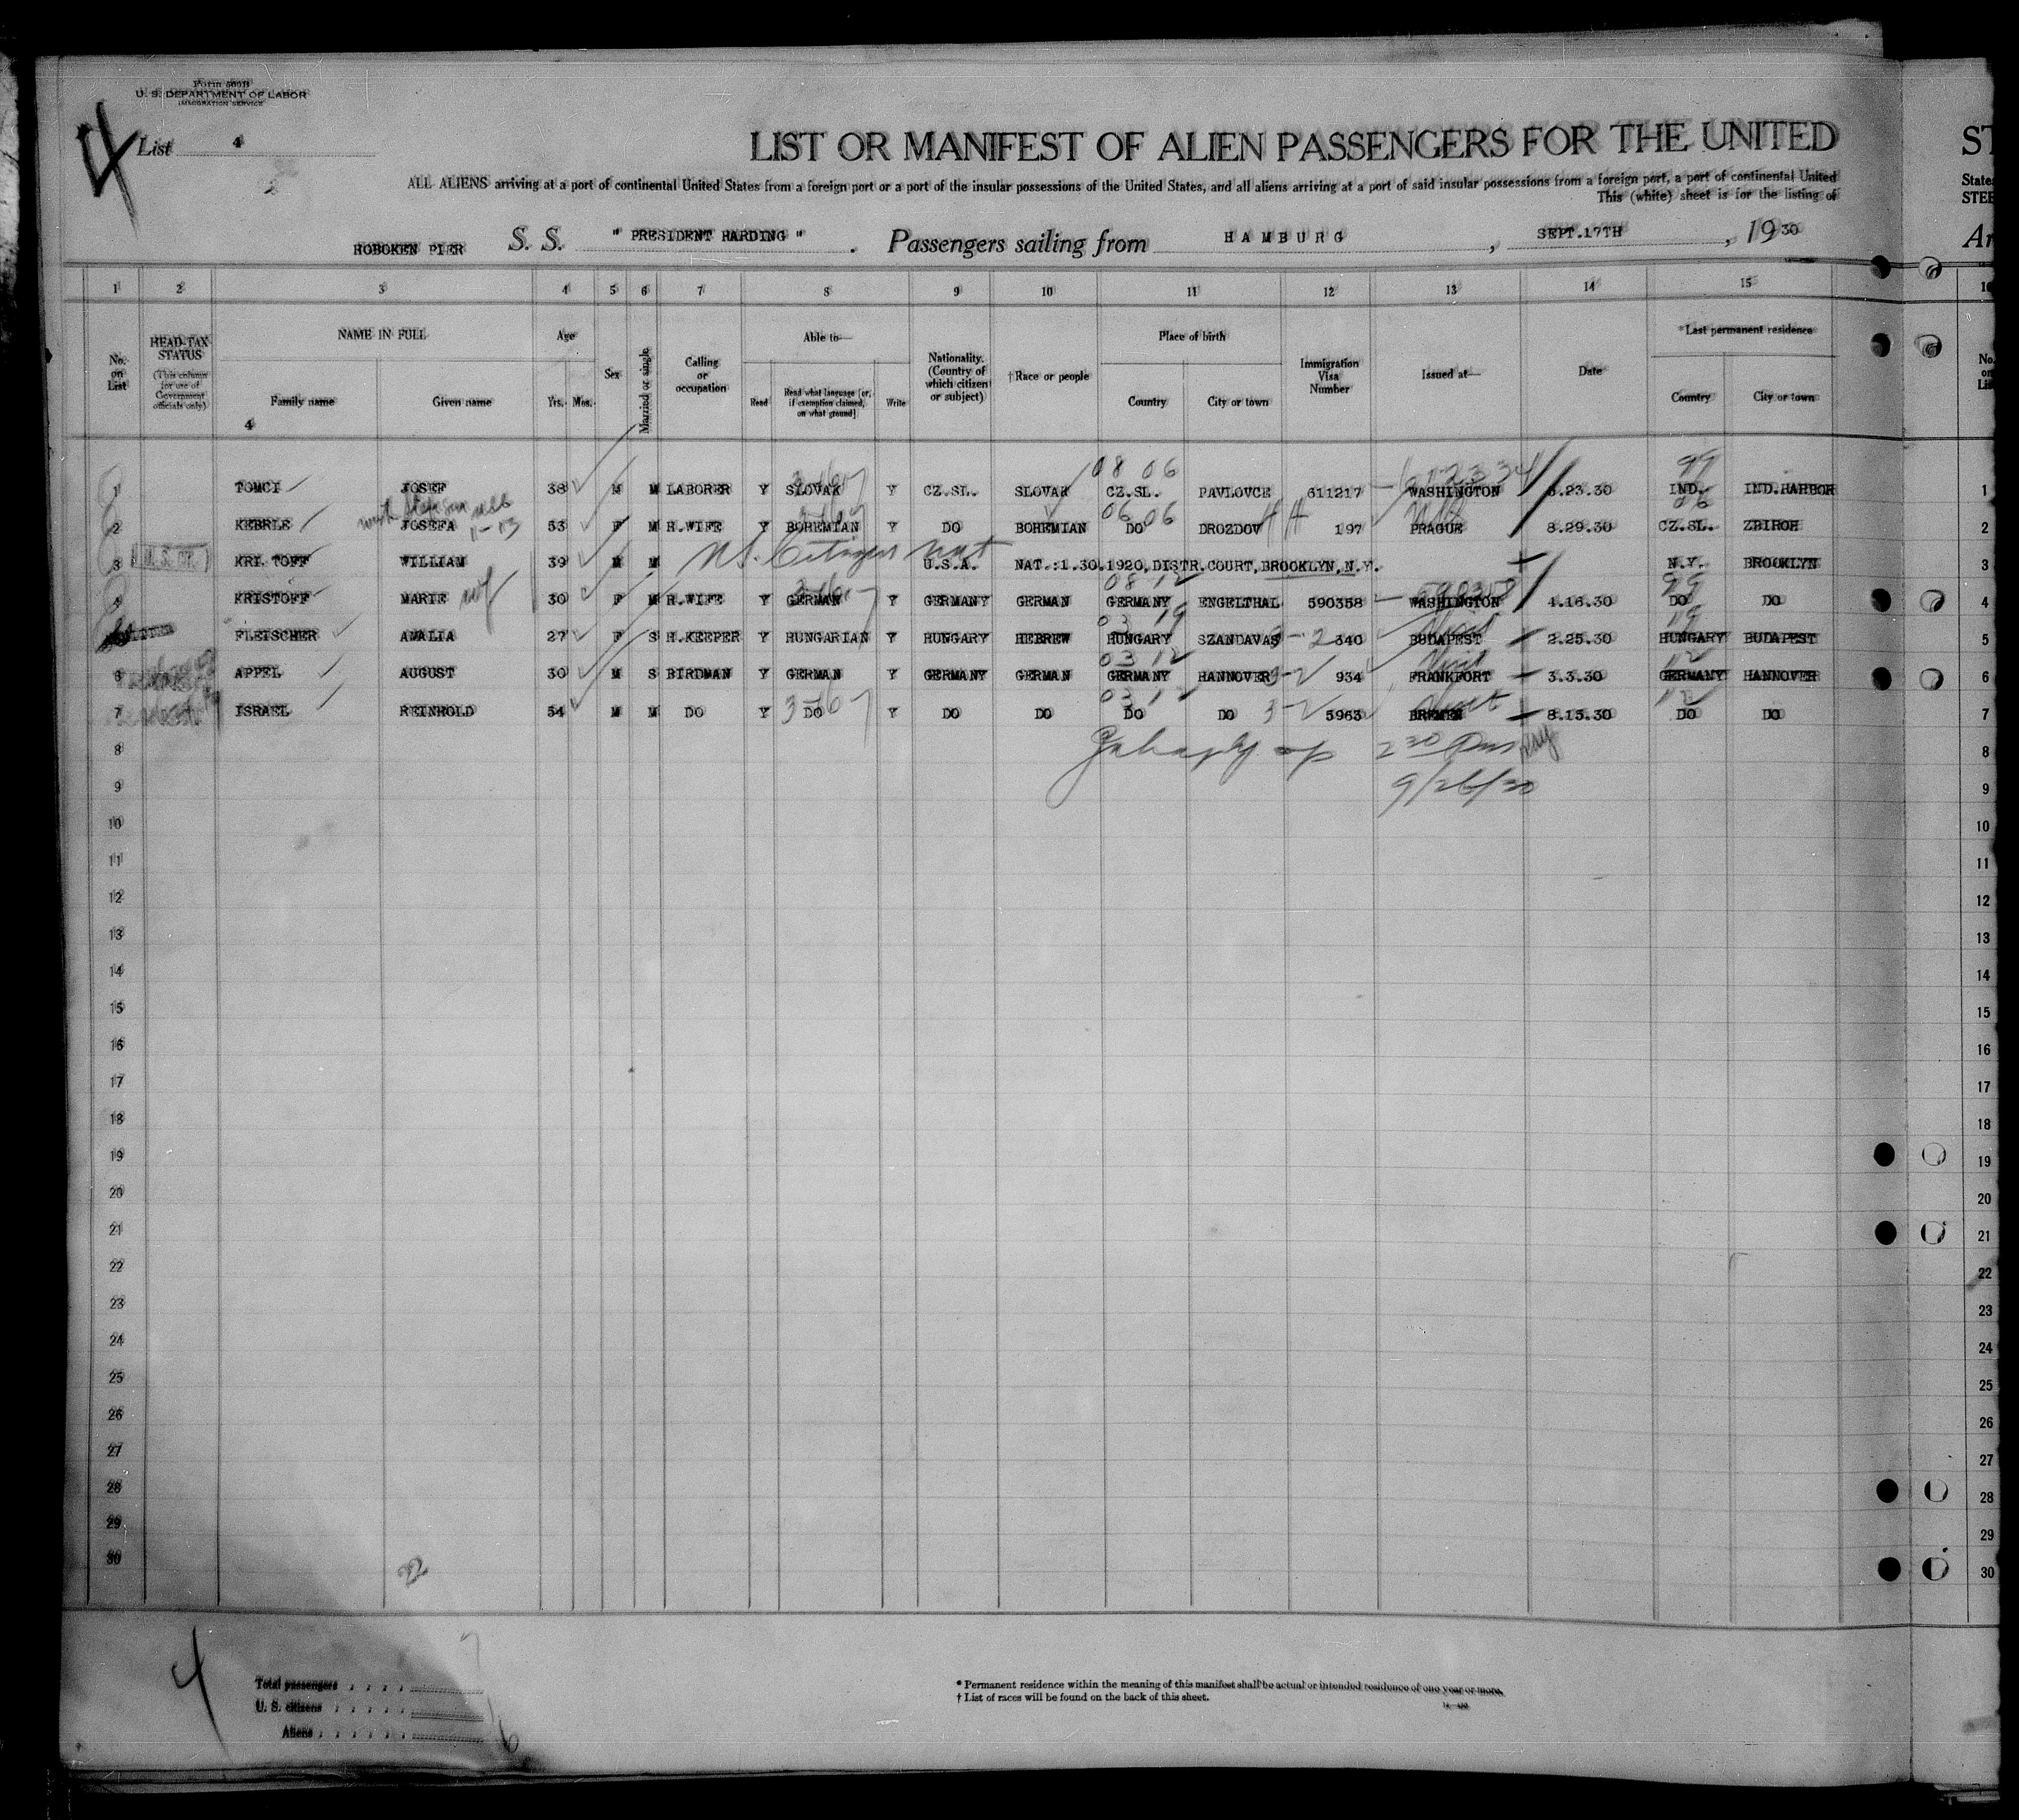 Form 500B
U. S. DEPARTMENT OF LABOR
IMMIGRATION SERVICE
4
List 4
2
LIST OR MANIFEST OF ALIEN PASSENGERS FOR THE UNITED
ST
ALL ALIENS arriving at a port of continental United States from a foreign port or a port of the insular possessions of the United States, and all aliens arriving at a port of said insular possessions from a foreign port, a port of continental United
States
This (white) sheet is for the listing of
STEE
HOBOKEN PIER S. S. " PRESIDENT HARDING ". Passengers sailing from HAMBURG, SEPT.17TH, 1930
Ar
1 2 3 4 5 6 7 8 9 10 11 12 13 14 15
No. on List
HEAD-TAX STATUS
(This column for use of Government officials only)
NAME IN FULL
Family name
Given name
4
Age
Yrs. Mos.
Sex
Married or single
Calling or occupation
Able to—
Read
Read what language [or, if exemption claimed, on what ground]
Write
Nationality. (Country of which citizen or subject)
†Race or people
Place of birth
Country
City or town
Immigration Visa Number
Issued at—
Date
*Last permanent residence
Country
City or town
08 06 99
1 TOMCI JOSEF 38 M M LABORER Y SLOVAK Y CZ.SL. SLOVAK CZ.SL. PAVLOVCE 611217 WASHINGTON 6.23.30 IND. IND.HARBOR 1
06 06
2 KEBRLE JOSEFA 53 F M H.WIFE Y BOHEMIAN Y DO BOHEMIAN DO DROZDOV 197 PRAGUE 8.29.30 CZ.SL. ZBIROH 2
U.S. Citizen nat
3 KRI TOFF WILLIAM 39 M M U.S.A. NAT.:1.30.1920,DISTR.COURT,BROOKLYN,N.Y. N.Y. BROOKLYN 3
08 12 590358 99
4 KRISTOFF MARIE wf 30 F M H.WIFE Y GERMAN Y GERMANY GERMAN GERMANY ENGELTHAL 590358 WASHINGTON 4.16.30 DO DO 4
03 19 Visit 19
5 FLEISCHER AMALIA 27 F S H.KEEPER Y HUNGARIAN Y HUNGARY HEBREW HUNGARY SZANDAVAS 3-2 340 BUDAPEST 2.25.30 HUNGARY BUDAPEST 5
03 12 Visit 12
6 APPEL AUGUST 30 M S BIRDMAN Y GERMAN Y GERMANY GERMAN GERMANY HANNOVER 3-2 934 FRANKFORT 3.3.30 GERMANY HANNOVER 6
03 12 Visit 12
7 ISRAEL REINHOLD 54 M M DO Y DO Y DO DO DO DO 3-2 5963 BREMEN 8.15.30 DO DO 7
8 2 30 Pm 8
9 9/26/30 9
10 10
11 11
12 12
13 13
14 14
15 15
16 16
17 17
18 18
19 19
20 20
21 21
22 22
23 23
24 24
25 25
26 26
27 27
28 28
29 29
30 30
22
4
Total passengers 7
U. S. citizens 1
Aliens 6
* Permanent residence within the meaning of this manifest shall be actual or intended residence of one year or more.
† List of races will be found on the back of this sheet.